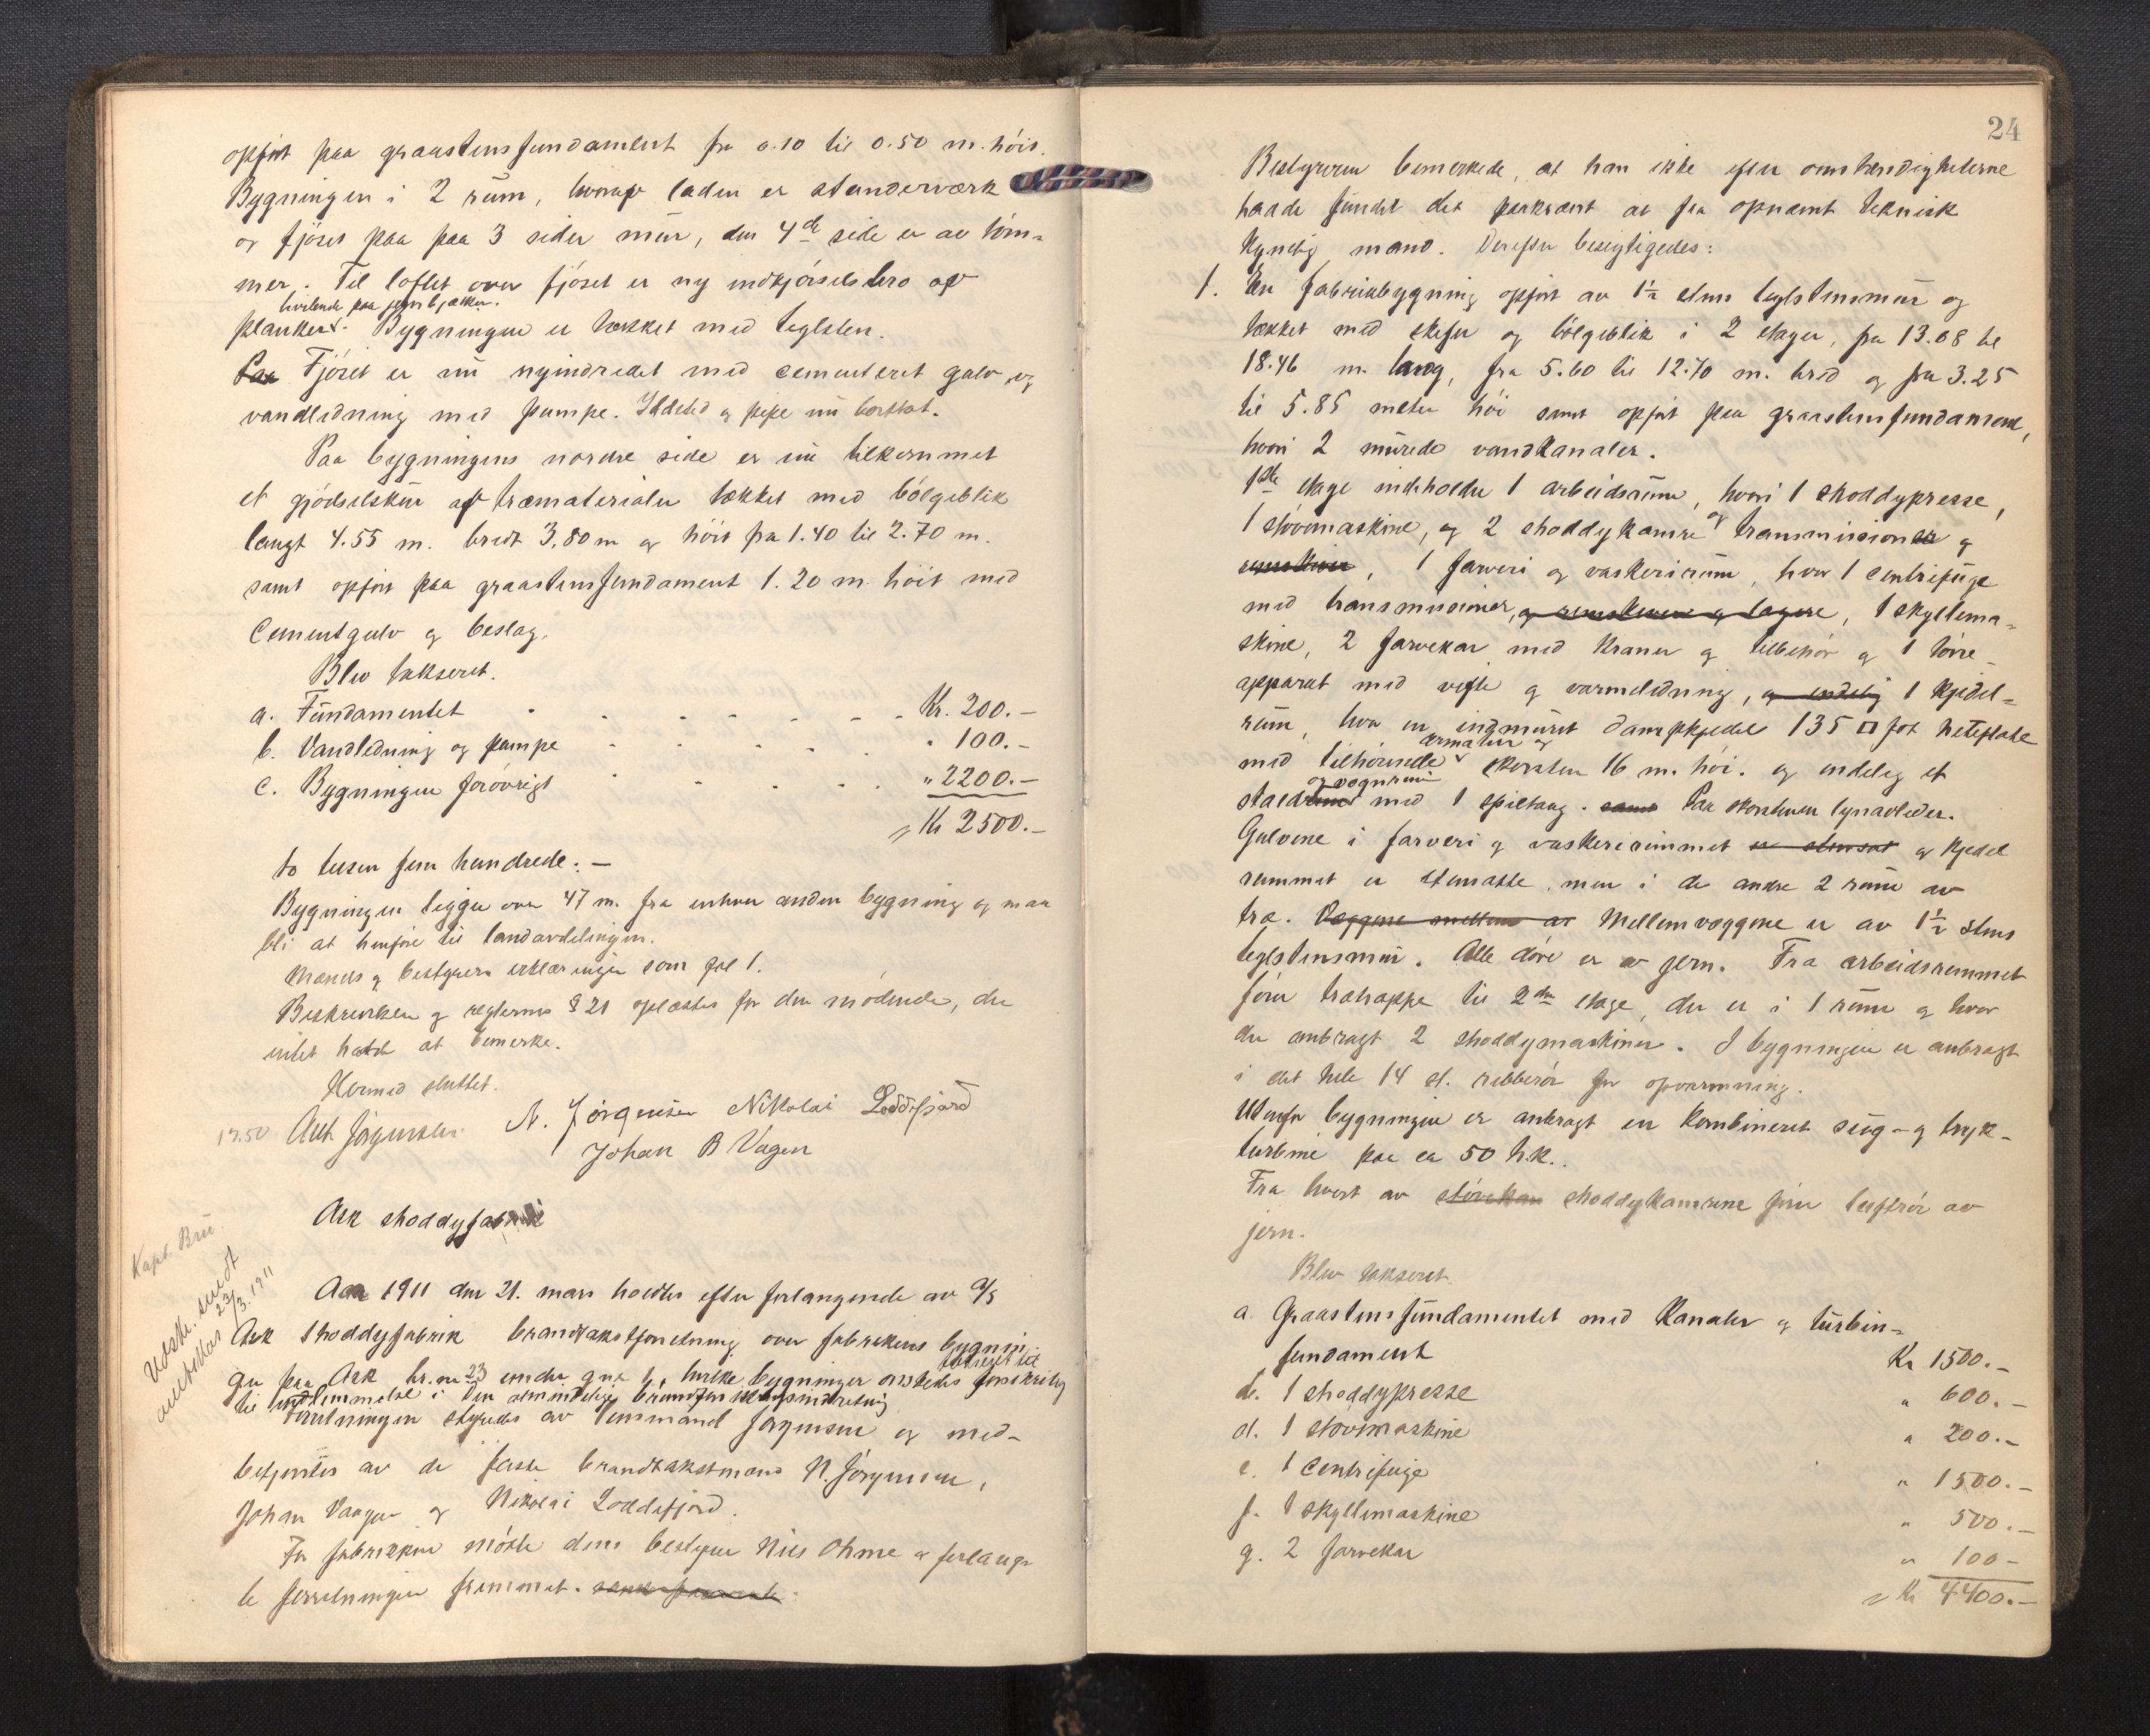 opført paa graastensfundament fra 0.10 til 0.50 m. høit.
Bygningen i 2 rum, hvorav laden er stenderværk
og fjøset paa paa 3 sider mur, den 4de side er av tøm-
mer. Til loftet over fjøset er ny indkjørselsbro af
hvilende paa jernbjælker.
planker. Bygningen er tækket med teglsten.
Paa Fjøset er nu nyindredet med cementeret gulv og
vandledning med pumpe. Ildsted og pipe nu borttat.
Paa bygningens nordre side er nu tilkommet
et gjødselskur af træmaterialer tækket med bølgeblik
langt 4.55 m. bredt 3,80 m og høit fra 1.40 til 2.70 m.
samt opført paa graastensfundament 1.20 m. høit med
Cementgulv og beslag.
Blev takseret.
a. Fundamentet Kr. 200.-
b. Vandledning og pumpe " 100.-
c. Bygningen forøvrigt " 2200.-
Kr 2500.-
to tusen fem hundrede. -
Bygningen ligger over 47 m. fra enhver anden bygning og maa
bli at henføre til landavdelingen.
Mænds og bestyrers erklæringer som fol 1.
Beskrivelsen og reglernes § 21 oplæstes for den mødende, der
intet hadde at bemerke.
Hermed sluttet.
17.50 Ant Jörgensen N. Jörgensen Nikolai Loddefjord
Johan B Vagen
Ask shoddyfabrik
Kapt. Brü.
Udskr. sendt
amtskar 23/3. 1911
Aar 1911 den 21. mars holdtes efter forlangende av A/S
Ask Shoddyfabrik brandtakstforretning over fabrikens bygnin
ger paa Ask br. no 23 under gno 4, hvilke bygninger ønskedes
til indlemmelse i den almindelige brandforsikringsindretning
Forretningen styredes av lensmand Jørgensen og med-
betjentes av de faste brandtakstmænd N. Jørgensen,
Johan Vaagen og Nikolai Loddefjord.
For fabrikken møtte dens bestyrer Nils Ohme og forlang-
te forretningen fremmet.
24
Bestyreren bemerkede, at han ikke efter omstændigheterne
havde fundet det paakrævet at faa opnævnt teknisk
kyndig mand. Derefter besigtigedes:
1. En fabrikbygning opført av 1½ stens teglstensmur og
tækket med skifer og bølgeblik i 2 etager, fra 13.08 til
18.46 m. lang, fra 5.60 til 12.70 m. bred og fra 3.25
til 5.85 meter høi samt opført paa graastensfundament,
hvori 2 murede vandkanaler.
1ste etage indeholder 1 arbeidsrum, hvori 1 shoddypresse,
1 støvmaskine, og 2 shoddykamre og transmissioner og
remskiver, 1 farveri og vaskerirum, hvor 1 centrifuge
med transmissioner, og remskiver og lagere, 1 skyllema-
skine, 2 farvekar med kraner og tilbehør og 1 tørre-
apparat med vifte og varmeledning, og endelig 1 kjedel-
rum, hvor en indmuret dampkjedel 135 □ fot heteflate
armatur og
med tilhørende skorsten 16 m. høi. og endelig et
og vognrum
staldrum med 1 spiltaug. samt Paa skorstenen lynavleder.
Gulvene i farveri og vaskerirummet er stensat og kjedel
rummet er stensatte, men i de andre 2 rum av
træ. Væggene mellem er Mellemvæggene er av 1½ stens
teglstensmur. Alle døre er av jern. Fra arbeidsrummet
fører trætrappe til 2den etage, der er i 1 rum og hvor
der anbragt 2 shoddymaskiner. I bygningen er anbragt
i det hele 14 st. ribberør for opvarmning.
Utenfor bygningen er anbragt en kombineret sug- og tryk-
turbine paa ca 50 h.k.
Fra hvert av støvekar shoddykamrene fører luftrør av
jern.
Blev takseret.
a. Graastensfundamentet med kanaler og turbin-
fundament Kr 1500.-
b. 1 shoddypresse " 600.-
d. 1 støvmaskine " 200.-
e. 1 Centrifuge " 1500.-
f. 1 skyllemaskine " 500.-
g. 2 farvekar " 100-
Kr 4400.-